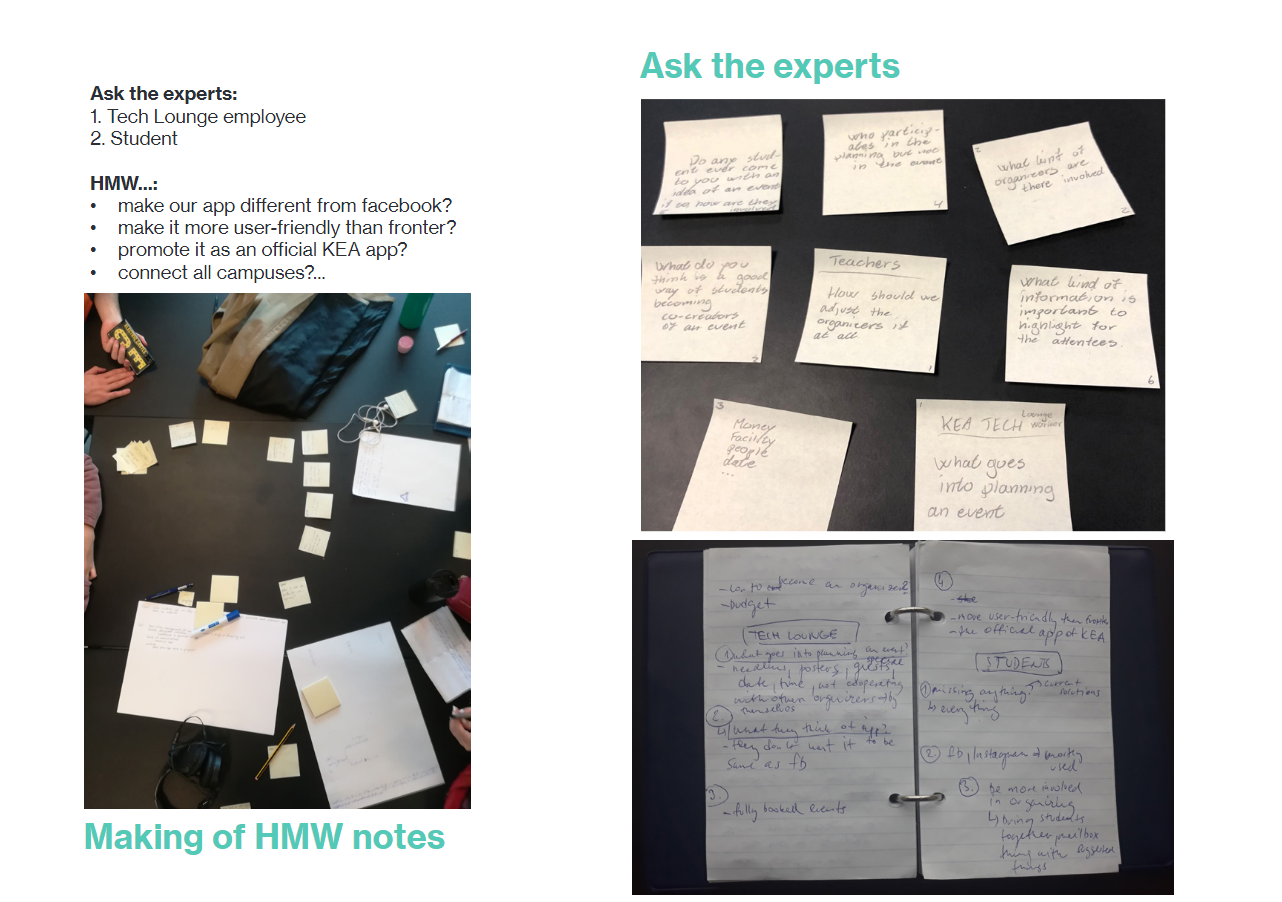 Ask the experts:
1. Tech Lounge employee
2. Student
HMW...:
• make our app different from facebook?
• make it more user-friendly than fronter?
• promote it as an official KEA app?
• connect all campuses?...
Making of HMW notes
Ask the experts
Do any stud-
ent ever come
to you with an
idea of an event
if so how are they
involved
who particip-
ates in the
planning but not
in the event
4
2
what kind of
organizers are
there involved
2
What do you
think is a good
way of students
becoming
co-creators
of an event
Teachers
How should we
adjust the
organizers if
at all
1
What kind of
information is
important to
highlight for
the attentees.
6
3
Money
Facility
people
date
...
1
KEA TECH Lounge
worker
What goes
into planning
an event
become an organizer?
- budget
TECH LOUNGE
1. what goes into planning an event?
posters, guests,
date, time, not cooperating
with other organizers
themselves
2.
What they think of app?
- they don't want it to be
same as fb
3.
- fully booked events
4.
- more user-friendly then
- the official app of KEA
STUDENTS
1. missing anything? → current
solutions
↳ everything
2. fb, Instagram mostly
used
3. be more involved
in organizing
↳ bring students
together
thing with suggested
things